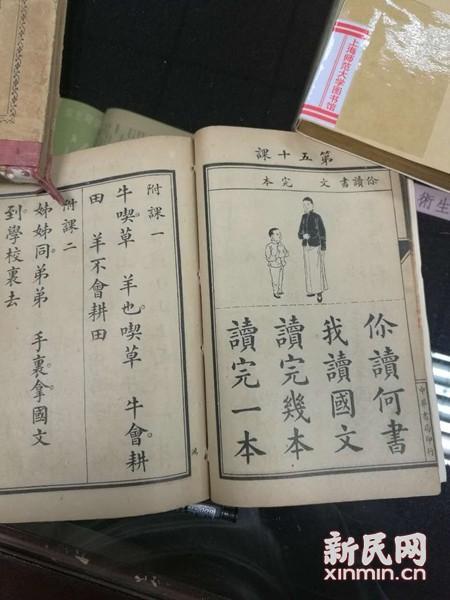 第五十課
伱讀書 文 完本
伱讀何書
我讀國文
讀完幾本
讀完一本
中華書局印行
附課一
牛喫草 羊也喫草 牛會耕
田 羊不會耕田
附課二
姊姊同弟弟 手裏拿國文
到學校裏去
上海师范大学图书馆
術生
新民网
xinmin.cn